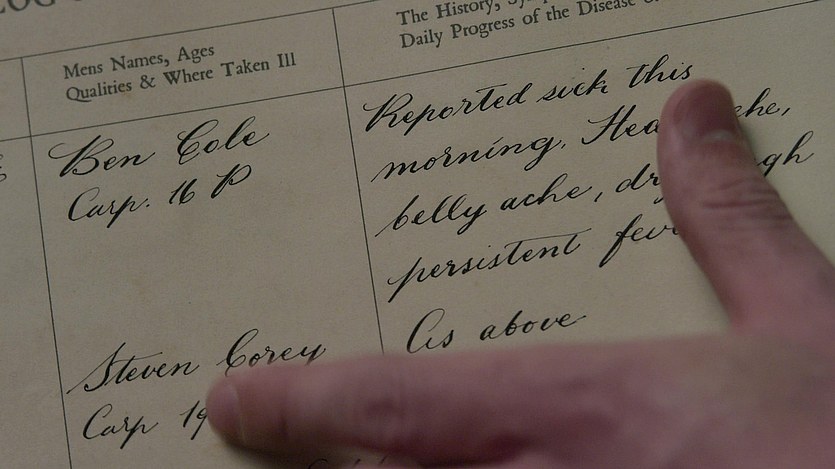 LOG
Mens Names, Ages
Qualities & Where Taken Ill
The History,
Daily Progress of the Disease
Ben Cole
Carp. 16 P
Reported sick this
morning.
belly ache,
persistent
Steven Corey
Carp 19
As above